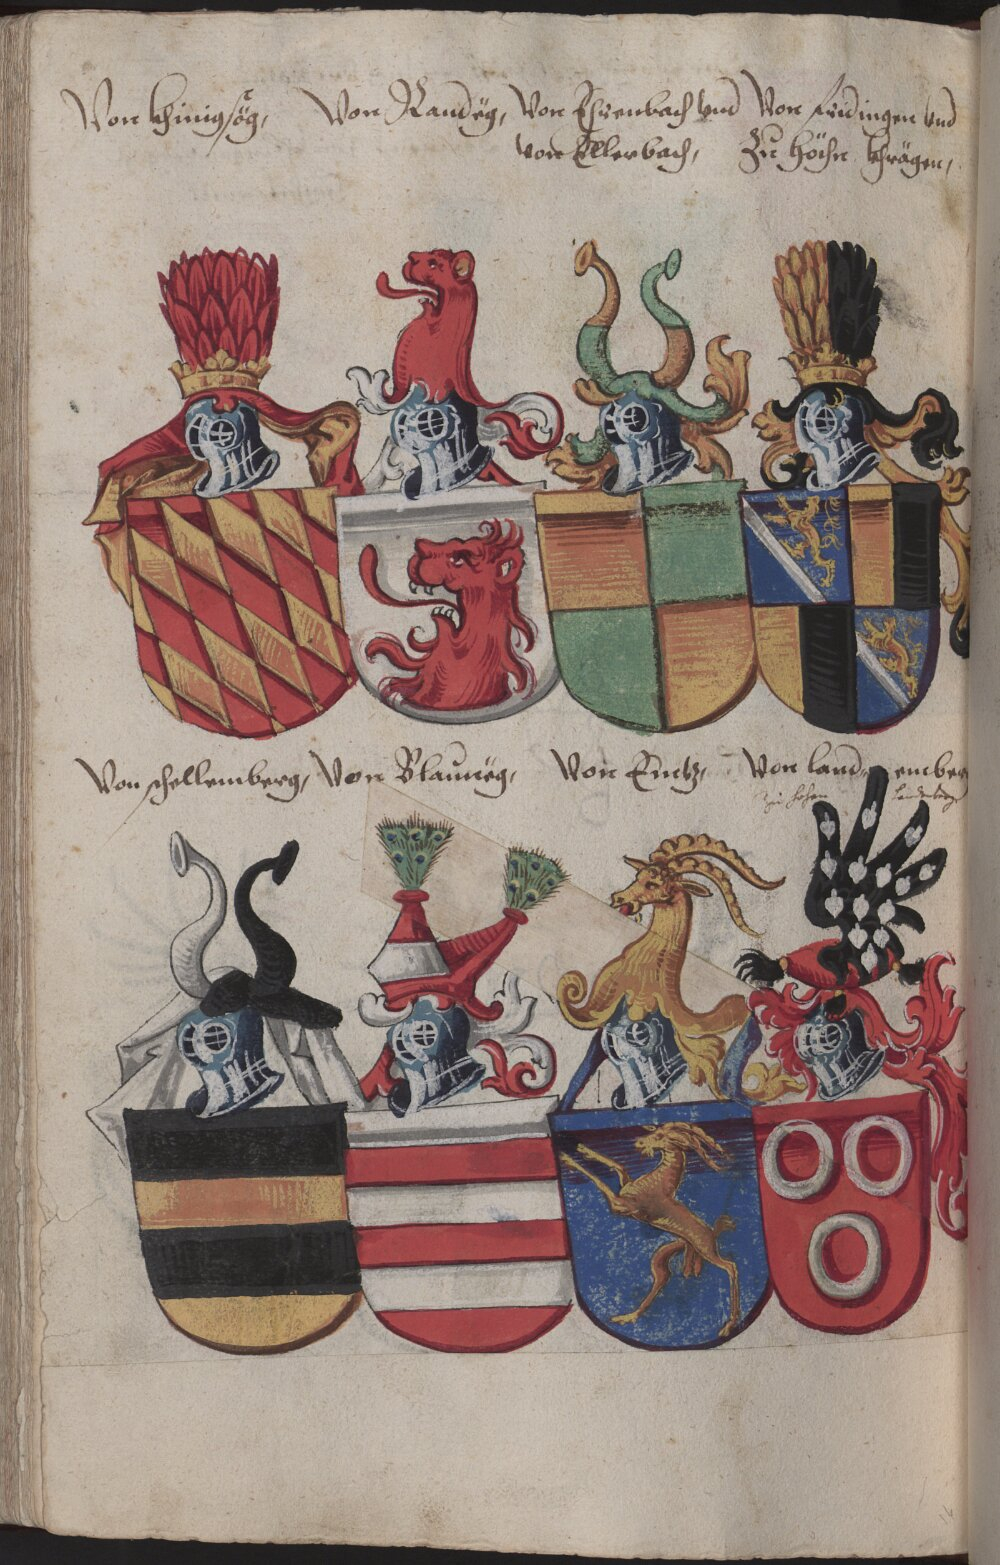 Von Khinigsög,
Von Randëg,
Von Ihrenbach vnd
von Ellerbach,
Von Fridingen vnd
Zu Höchn Khrägen,
Von schellemberg,
Von Blaumëg,
Von Emtz,
Von land emberg
zu hohen landenberg